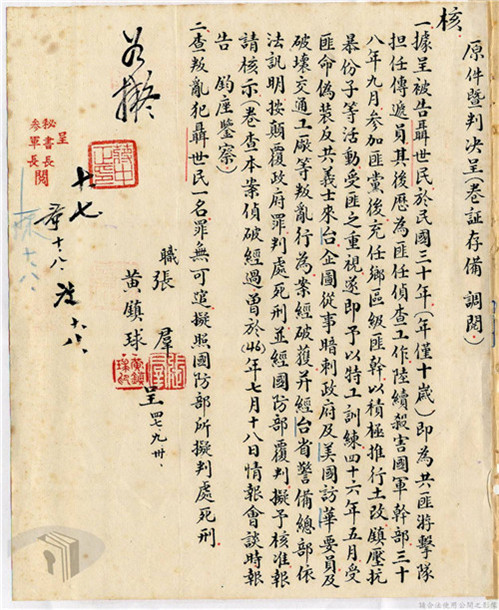 原件暨判決呈(卷証存備 調閱)
核
一據呈被告聶世民於民國三十年(年僅十歲)即為共匪游擊隊
担任傳遞員其後歷為匪任偵查工作陸續殺害國軍幹部三十
八年九月參加匪黨後充任鄉區級匪幹以積極推行土改鎮壓抗
暴份子等活動受匪之重視遂即予以特工訓練四十六年五月受
匪命偽裝反共義士來台企圖從事暗刺政府及美國訪華要員及
破壞交通工廠等叛亂行為案經破獲并經台省警備總部依
法訊明按顛覆政府罪判處死刑並經國防部覆判擬予核准報
請核示(卷查本案偵破經過曾於(46)年七月十八日情報會談時報
告 鈞座鑒察)
二查叛亂犯聶世民一名罪無可逭擬照國防部所擬判處死刑
職張 羣
黃鎮球
呈 四七、九、卅、
如擬
呈
秘書長
參軍長
閱
十、七
羣 十、八、
十、八、